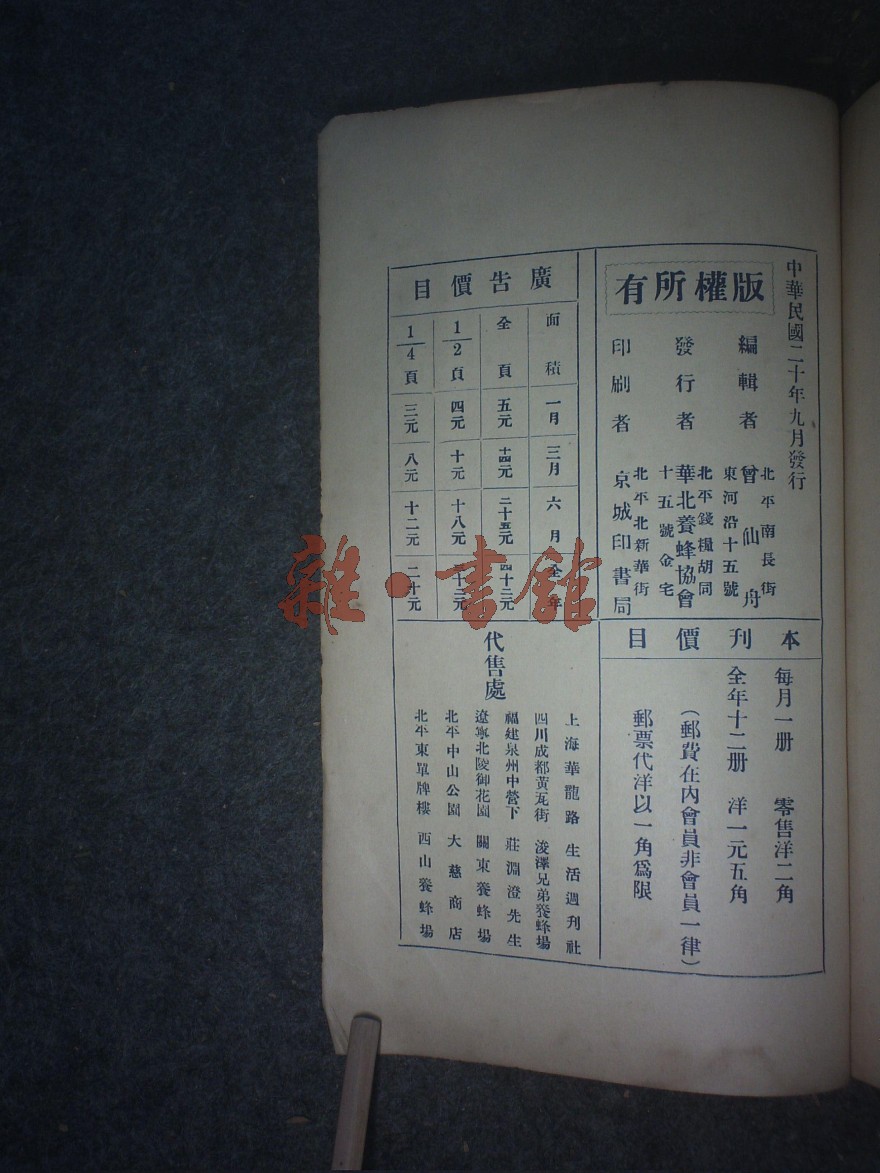 中華民國二十年九月發行
版權所有
編輯者
北平南長街
東河沿十五號
曾仙舟
發行者
北平錢糧胡同
十五號金宅
華北養蜂協會
印刷者
北平北新華街
京城印書局
本刊價目
每月一册　零售洋二角
全年十二册　洋一元五角
（郵費在內會員非會員一律）
郵票代洋以一角爲限
廣告價目
面積　一月　三月　六月　全年
全頁　五元　十四元　二十五元　四十二元
1/2頁　四元　十元　十八元
1/4頁　三元　八元　十二元　二十元
代售處
上海華龍路　生活週刊社
四川成都黃瓦街　浚澤兄弟養蜂場
福建泉州中營下　莊淵澄先生
遼寧北陵御花園　關東養蜂場
北平中山公園　大慈商店
北平東單牌樓　西山養蜂場
雜·書館